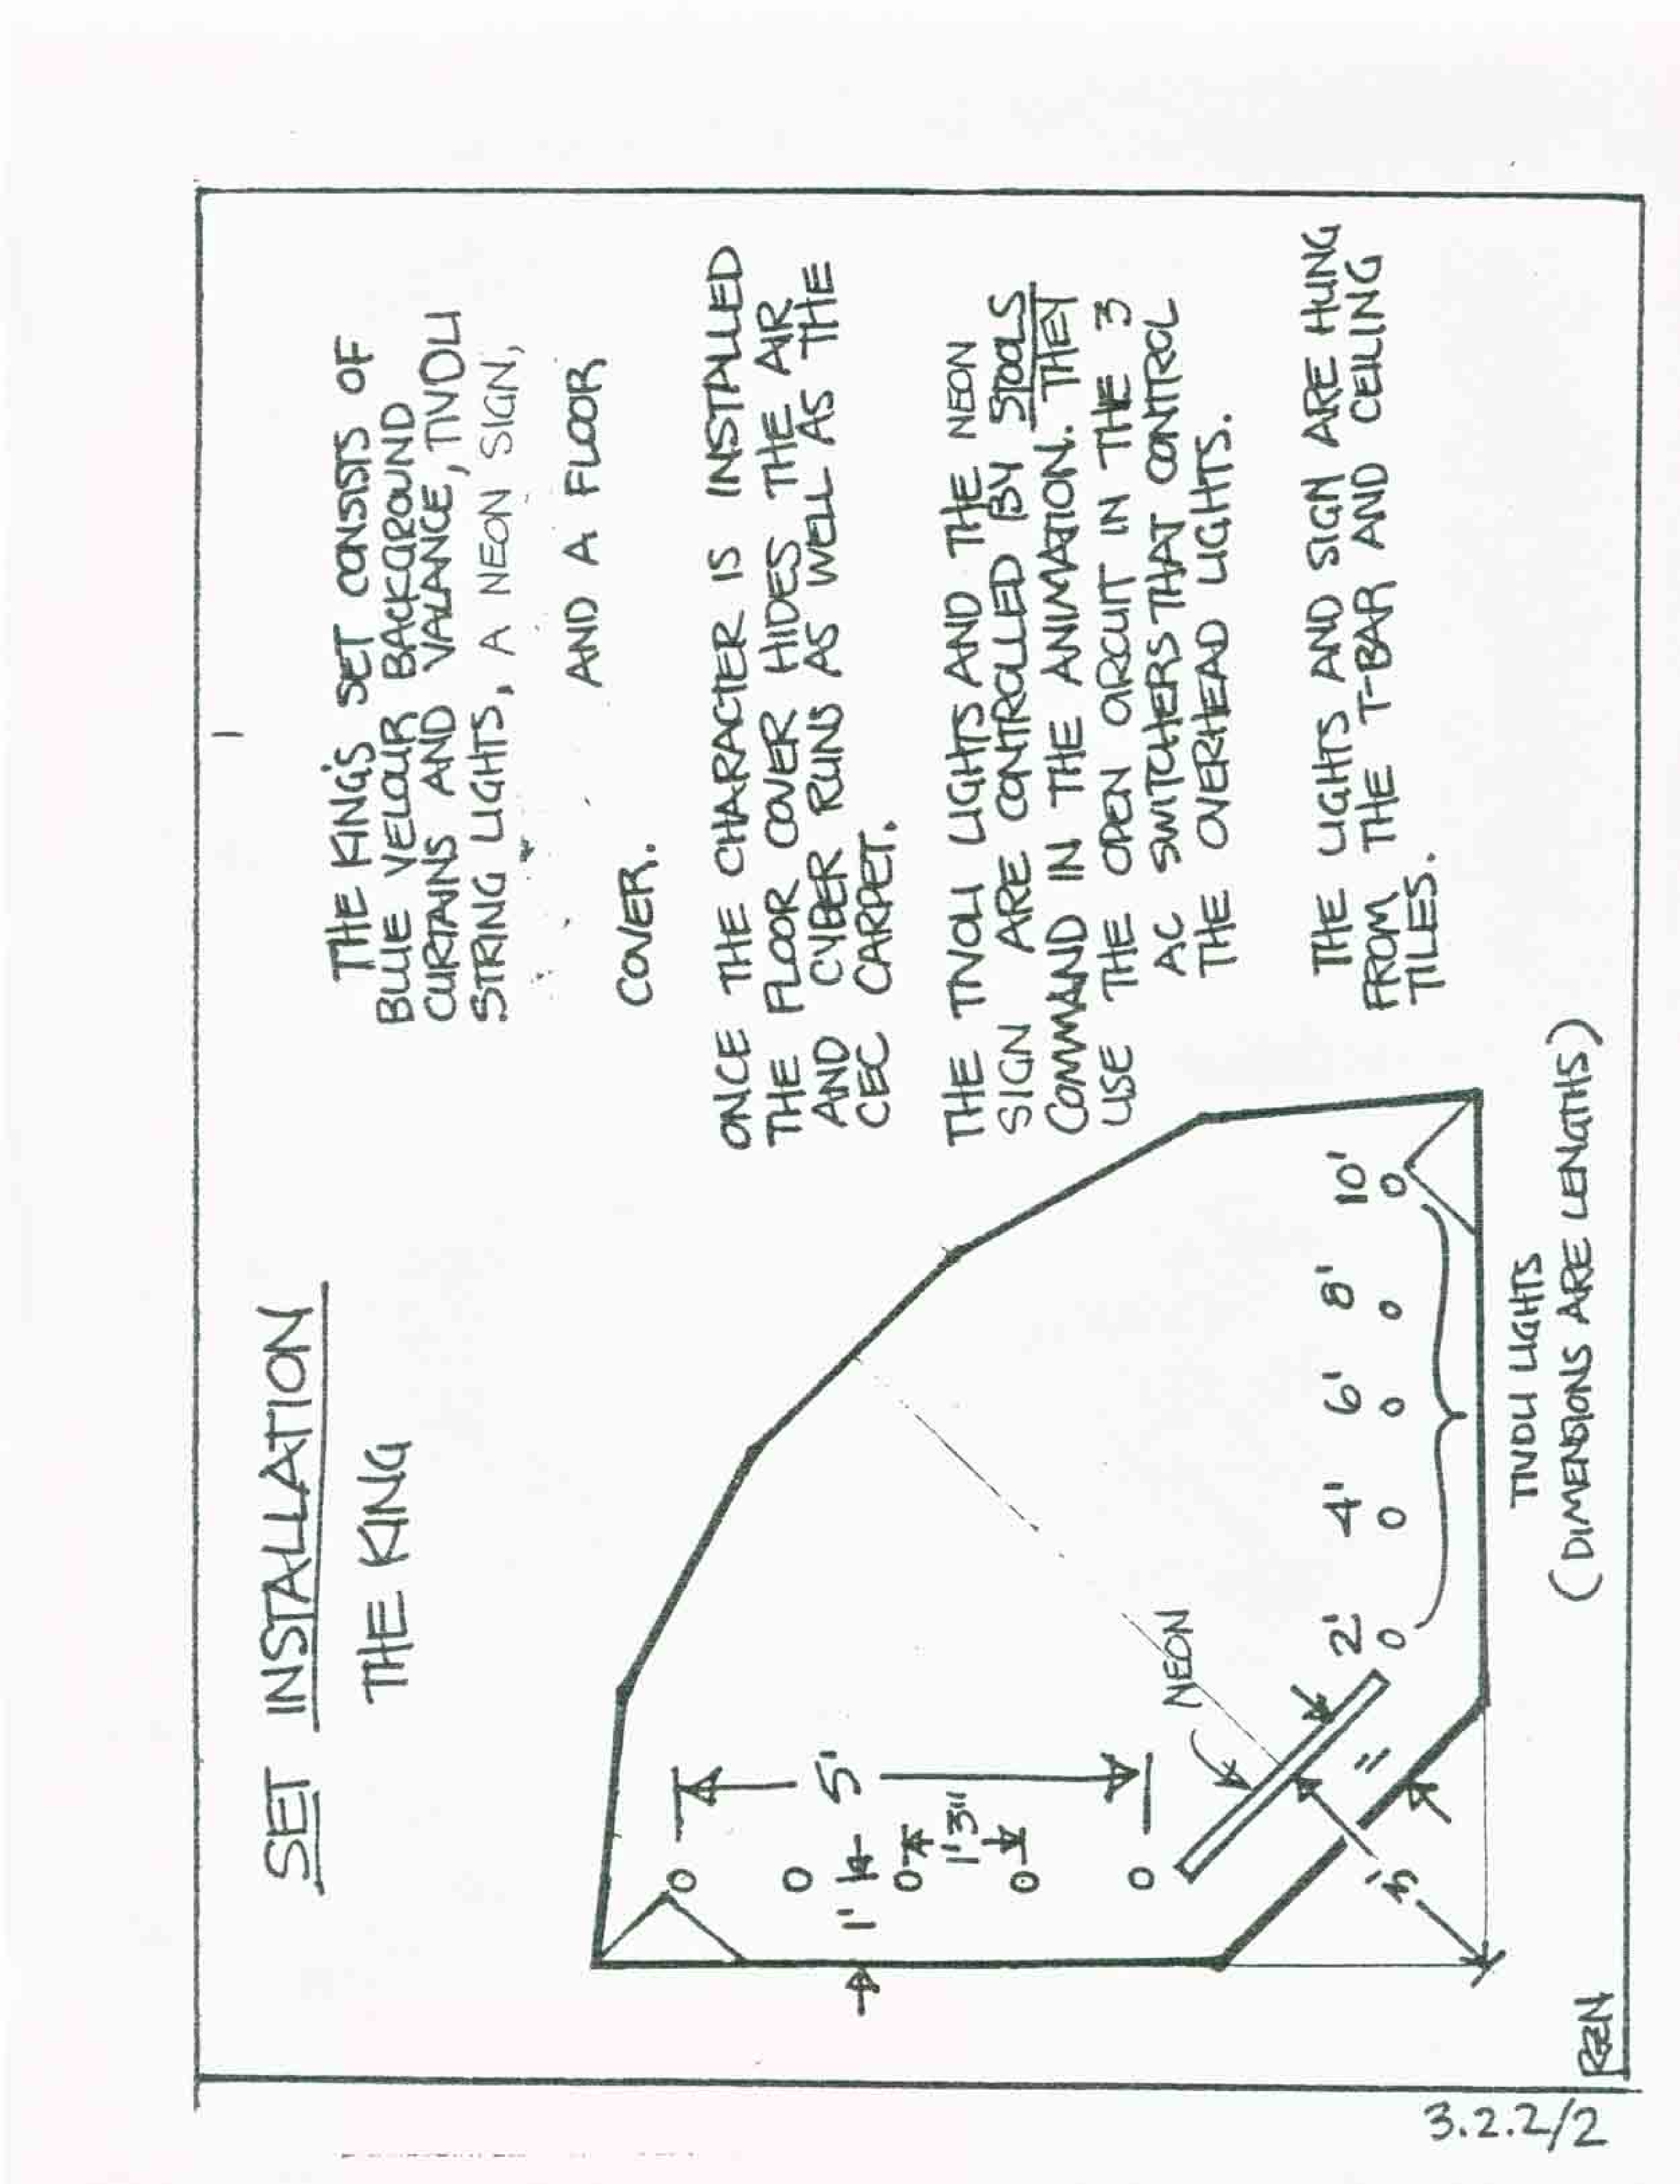 SET INSTALLATION
THE KING
THE KING'S SET CONSISTS OF
BLUE VELOUR BACKGROUND
CURTAINS AND VALANCE, TIVOLI
STRING LIGHTS, A NEON SIGN,
AND A FLOOR
COVER.
ONCE THE CHARACTER IS INSTALLED
THE FLOOR COVER HIDES THE AIR
AND CYBER RUNS AS WELL AS THE
CEC CARPET.
THE TIVOLI LIGHTS AND THE NEON
SIGN ARE CONTROLLED BY STOOLS
COMMAND IN THE ANIMATION. THEY
USE THE OPEN CIRCUIT IN THE 3
AC SWITCHERS THAT CONTROL
THE OVERHEAD LIGHTS.
THE LIGHTS AND SIGN ARE HUNG
FROM THE T-BAR AND CEILING
TILES.
5'
1'
1'3"
NEON
=
3'
2' 4' 6' 8' 10'
TIVOLI LIGHTS
(DIMENSIONS ARE LENGTHS)
RZN
3.2.2/2